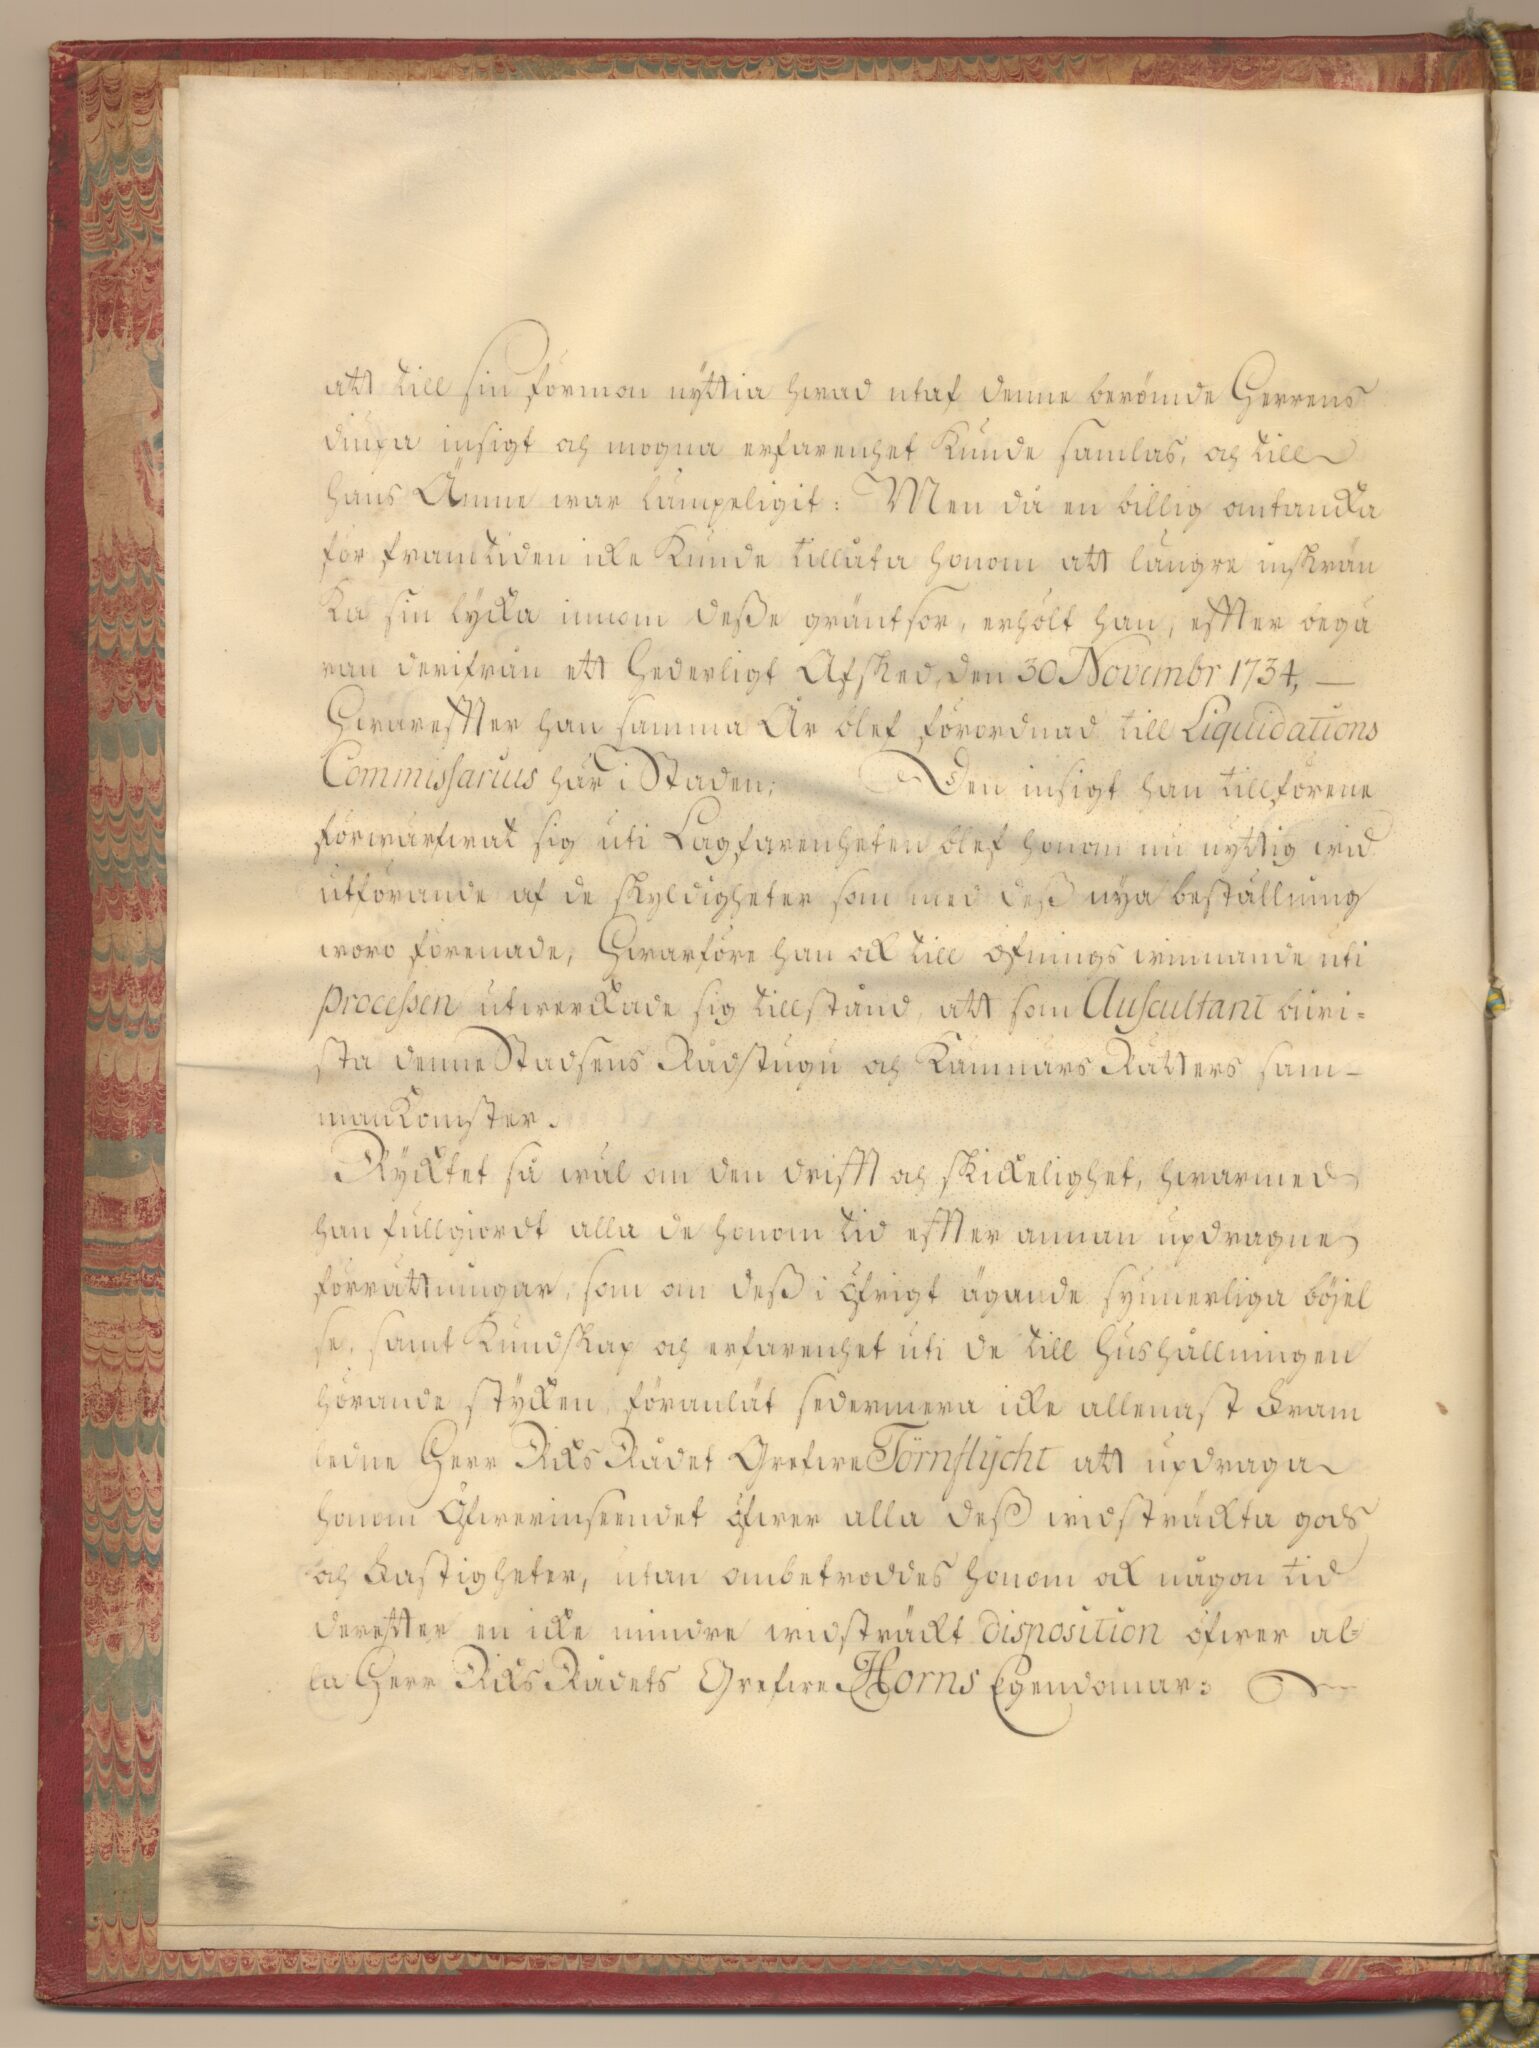 att till sin förmon nyttia hwad utaf denne berömde Herrens
diupa insigt och mogna erfarenhet Kunde samlas, och till
hans Ämne war lämpeligit: Men då en billig omtancka
för framtiden icke Kunde tillåta honom att längre inskrän
Ka sin lycka innom deße gräntsor, erhölt han, effter begä
ran derifrån ett hederligt Afsked, den 30 Novembr 1734, —
Hwareffter han samma År blef förordnad till Liquidations
Commissarius här i Staden; Den insigt han tillförene
förwärfwat sig uti Lagfarenheten blef honom nu nyttig wid
utförande af de skyldigheter som med deß nya beställning
woro förenade; Hwarföre han ock till öfnings winnande uti
Processen utwerckade sig tillstånd, att som Auscultant biwi-
sta denne Stadsens Rådstugu och Kämnärs Rätters sam-
mankomster.
Ryktet så wäl om den drifft och skickelighet, hwarmed
han fullgiordt alla de honom tid effter annan updragne
förrättningar, som om deß i öfrigt ägande synnerliga böjel
se, samt Kundskap och erfarenhet uti de till hushållningen
hörande stycken, föranlät sedermera icke allenast Fram
ledne Herr Riks Rådet Grefwe Törnflycht att updraga
honom Öfwerinseendet öfwer alla deß widsträckta gods
och Fastigheter, utan ombetroddes honom ock någon tid
dereffter en icke mindre widsträckt disposition öfwer al-
la Herr Riks Rådets Grefwe Horns Egendomar: